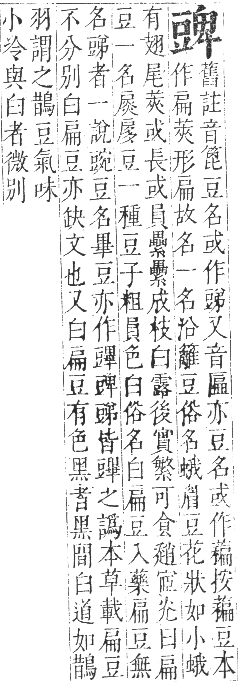 豍
舊註音篦豆名或作又音匾亦豆名或作稨按藊豆本
作扁莢形扁故名一名沿籬豆俗名蛾眉豆花狀如小蛾
有翅尾莢或長或員纍纍成枝白露後實繁可食趙宧光曰扁
豆一名豆一種豆子粗員色白俗名白扁豆入藥扁豆無
名者一說豌豆名畢豆亦作豍皆之譌本草載扁豆
不分別白扁豆亦缺文也又白扁豆有色黑者黑間白道如鵲
羽謂之鵲豆氣味
小冷與白者微別